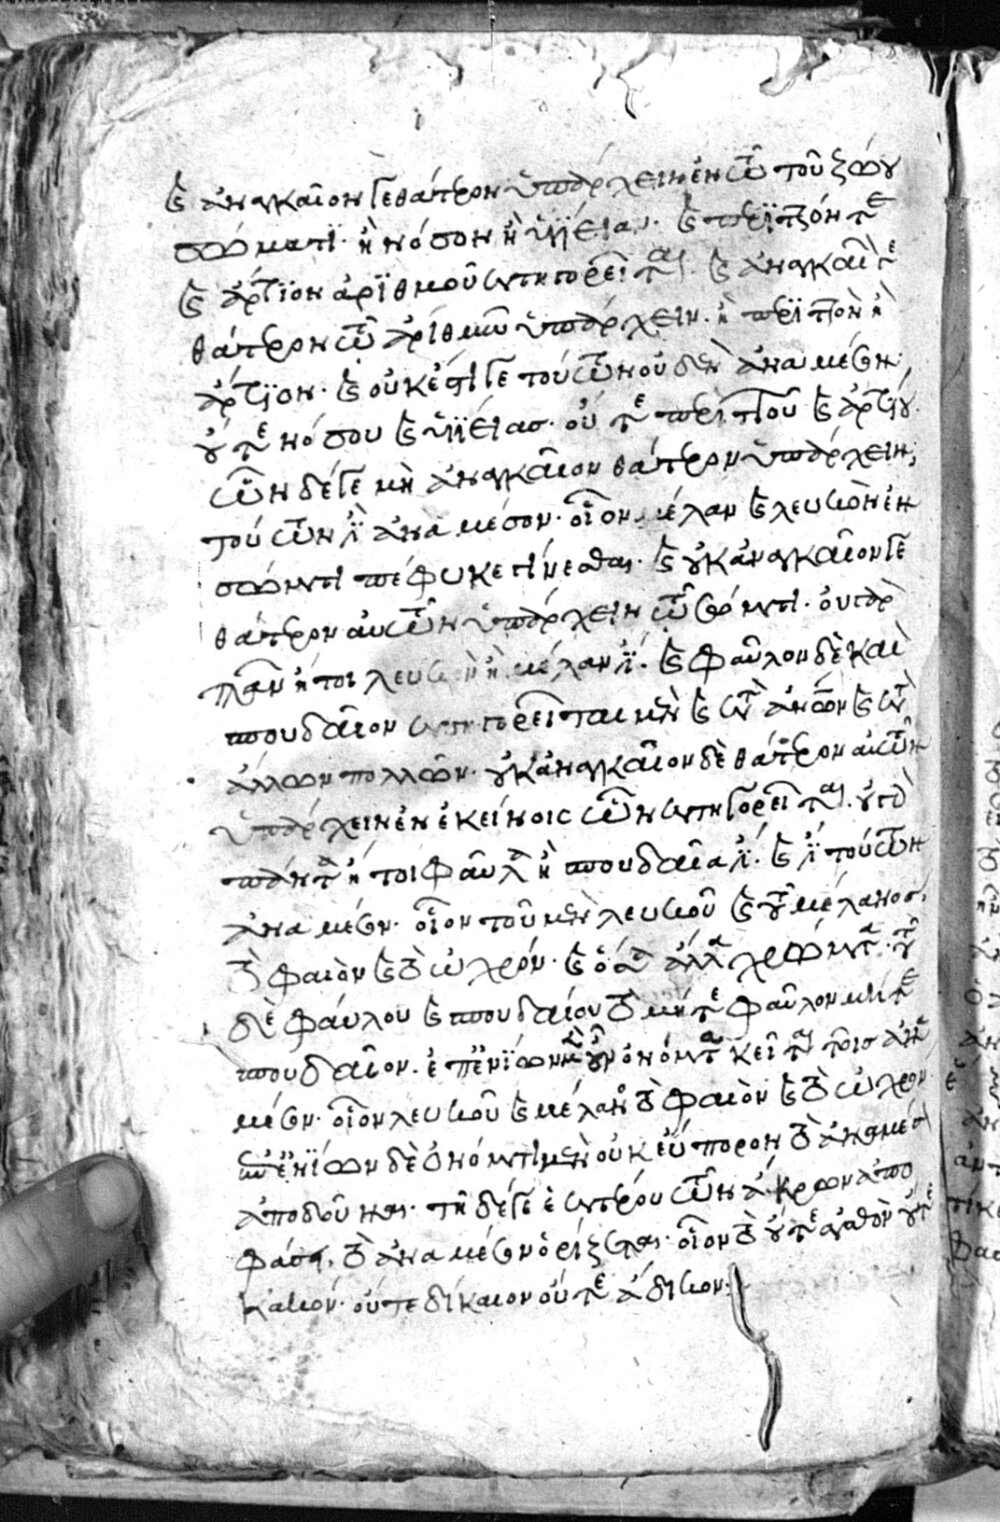 καὶ ἀναγκαῖόν γε θάτερον ὑπάρχειν ἐν τῶ τοῦ ζώου
σώματι· ἢ νόσον ἢ ὑγίειαν· καὶ περιττὸν τὲ
καὶ ἄρτιον ἀριθμοῦ κατηγορεῖται· καὶ ἀναγκαῖόν γε
θάτερον τῶ ἀριθμῶ ὑπάρχειν· ἢ περιττὸν ἢ
ἄρτιον· καὶ οὐκ ἔστι γε τούτων οὐδὲν ἀνὰ μέσον,
οὔτε νόσου καὶ ὑγιείας· οὔτε περιττοῦ καὶ ἀρτίου·
ὧν δέ γε μὴ ἀναγκαῖον θάτερον ὑπάρχειν,
τούτων ἔστι ἀνὰ μέσον· οἷον μέλαν καὶ λευκὸν ἐν
σώματι πέφυκε γίνεσθαι· καὶ οὐκ ἀναγκαῖόν γε
θάτερον αὐτῶν ὑπάρχειν τῶ σώματι· οὐ γὰρ
πᾶν ἤτοι λευκὸν ἢ μέλαν ἐστί· καὶ φαῦλον δὲ καὶ
σπουδαῖον κατηγορεῖται μὲν καὶ κατὰ ἀνθρώπου καὶ κατὰ
ἄλλων πολλῶν· οὐκ ἀναγκαῖον δὲ θάτερον αὐτῶν
ὑπάρχειν ἐν ἐκείνοις ὧν κατηγορεῖται· οὐ γὰρ
πάντα ἤτοι φαῦλα ἢ σπουδαῖα ἐστί· καὶ ἔστι τούτων
ἀνὰ μέσον· οἷον τοῦ μὲν λευκοῦ καὶ τοῦ μέλανος,
τὸ φαιὸν καὶ τὸ ὠχρόν· καὶ ὅσα ἄλλα χρώματα· τοῦ
δὲ φαύλου καὶ σπουδαίου τὸ μήτε φαῦλον μήτε
σπουδαῖον· ἐπ' ἐνίων μὲν οὖν ὀνόματα κεῖται τοῖς ἀνὰ
μέσον· οἷον λευκοῦ καὶ μέλανος τὸ φαιὸν καὶ τὸ ὠχρόν·
ἐπ' ἐνίων δὲ ὀνόματι μὲν οὐκ εὔπορον τὸ ἀνὰ μέσον
ἀποδοῦναι· τῆ δέ γε ἑκατέρου τῶν ἄκρων ἀπο
φάσει, τὸ ἀνὰ μέσον ὁρίζεται· οἷον τὸ οὔτε ἀγαθὸν οὔτε
κακόν· οὔτε δίκαιον οὔτε ἄδικον·